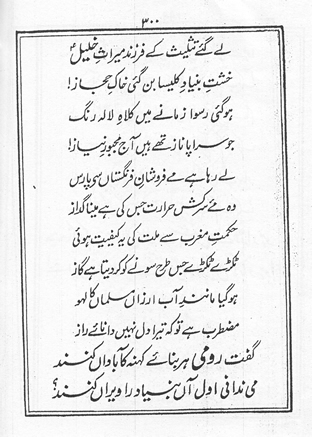 ۳۰۰
لے گئے تثلیث کے فرزند میراثِ خلیلؑ
خشتِ بنیادِ کلیسا بن گئی خاکِ حجاز!
ہو گئی رسوا زمانے میں کلاہِ لالہ رنگ
جو سراپا ناز تھے ہیں آج مجبورِ نیاز!
لے رہا ہے مے فروشانِ فرنگستاں سے پارس
وہ مئے سرکش حرارت جس کی ہے مینا گداز
حکمتِ مغرب سے ملت کی یہ کیفیت ہوئی
ٹکڑے ٹکڑے جس طرح سونے کو کر دیتا ہے گاز
ہو گیا مانندِ آب ارزاں مسلماں کا لہو
مضطرب ہے تو کہ تیرا دل نہیں دانائے راز
گفت رومی ہر بنائے کہنہ کآباداں کنند
می ندانی اول آں بنیاد را ویراں کنند؟